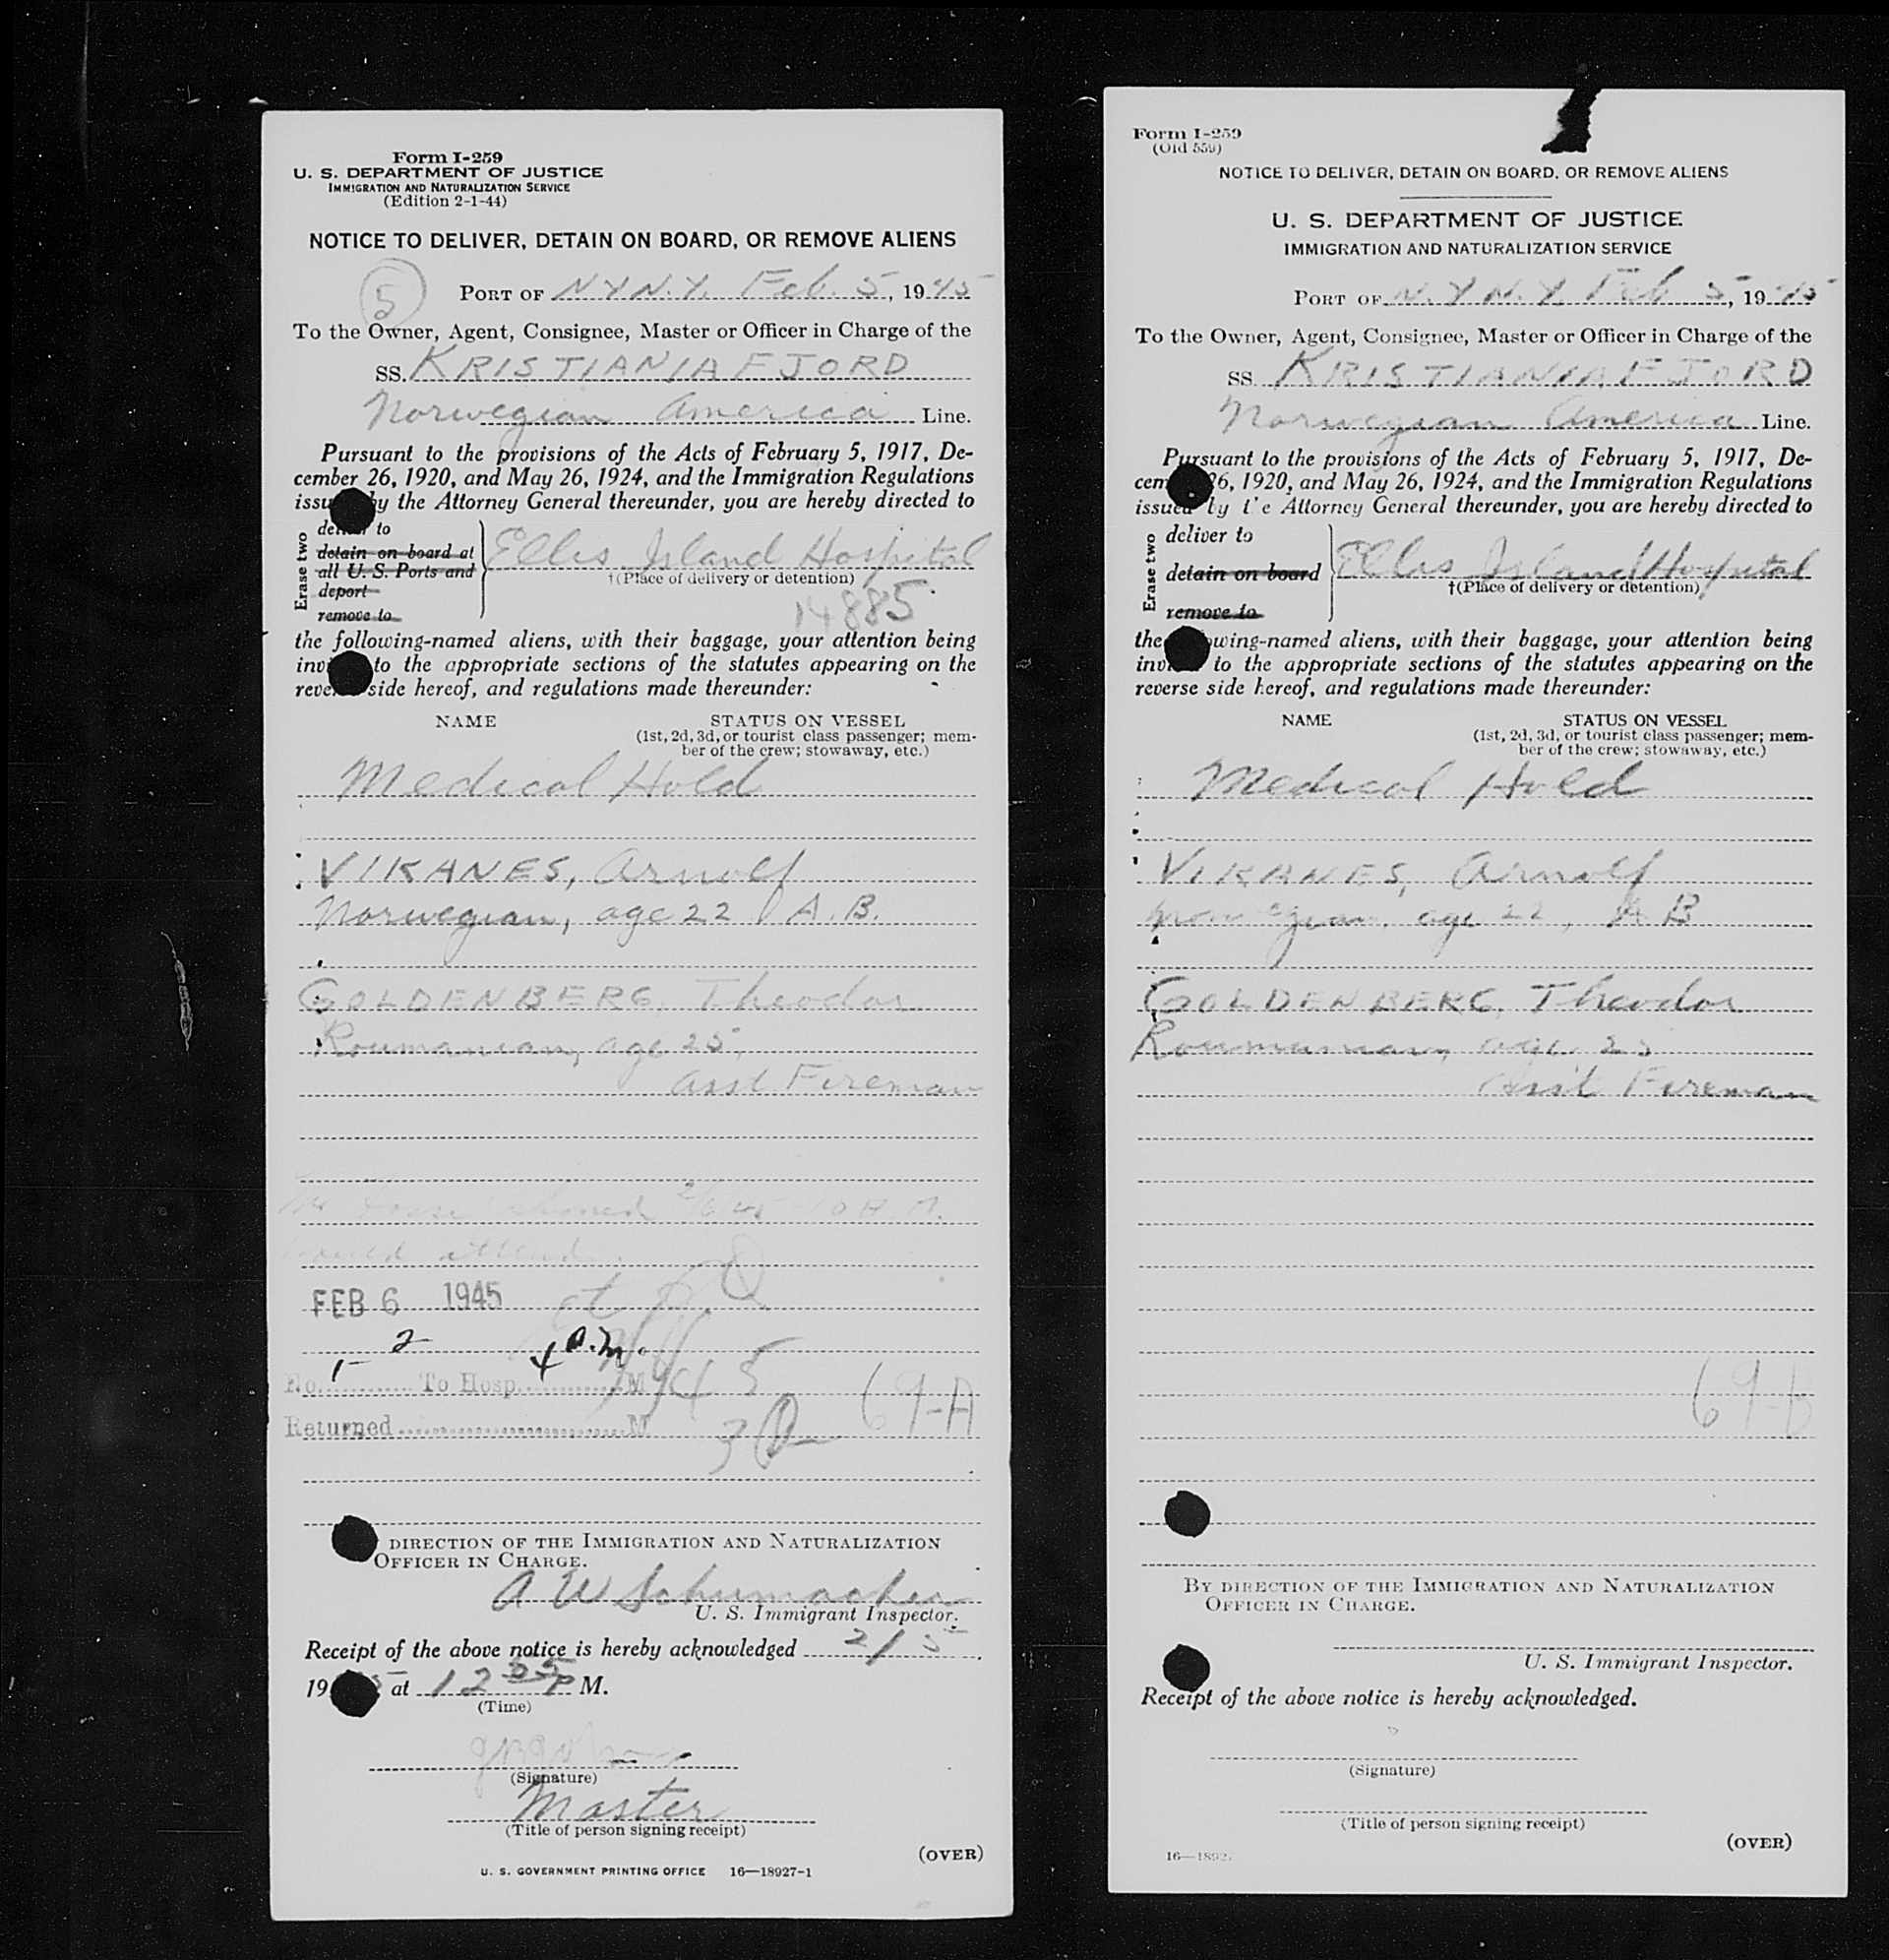 Form I-259
U. S. DEPARTMENT OF JUSTICE
IMMIGRATION AND NATURALIZATION SERVICE
(Edition 2-1-44)
NOTICE TO DELIVER, DETAIN ON BOARD, OR REMOVE ALIENS
5
PORT OF N Y N.Y. Feb. 5, 1945
To the Owner, Agent, Consignee, Master or Officer in Charge of the
SS. KRISTIANIAFJORD
Norwegian America Line.
Pursuant to the provisions of the Acts of February 5, 1917, De-
cember 26, 1920, and May 26, 1924, and the Immigration Regulations
by the Attorney General thereunder, you are hereby directed to
Erase two
to
detain on board at
all U. S. Ports and
deport
remove to
Ellis Island Hospital
†(Place of delivery or detention)
14885
the following-named aliens, with their baggage, your attention being
to the appropriate sections of the statutes appearing on the
side hereof, and regulations made thereunder:
NAME STATUS ON VESSEL
(1st, 2d, 3d, or tourist class passenger; mem-
ber of the crew; stowaway, etc.)
Medical Hold
VIKANES, Arnolf
Norwegian, age 22 A.B.
GOLDENBERG, Theodor
Roumanian, age 25,
Asst Fireman
FEB 6 1945
2
1- 4 a.m.
No. To Hosp. M
69-A
Returned M
3
DIRECTION OF THE IMMIGRATION AND NATURALIZATION
OFFICER IN CHARGE.
A W Schumacher
U. S. Immigrant Inspector.
Receipt of the above notice is hereby acknowledged 2/5
19 at 12 35 P M.
(Time)
(Signature)
Master
(Title of person signing receipt)
(OVER)
U. S. GOVERNMENT PRINTING OFFICE 16—18927-1
Form I-259
(Old 559)
NOTICE TO DELIVER, DETAIN ON BOARD, OR REMOVE ALIENS
U. S. DEPARTMENT OF JUSTICE
IMMIGRATION AND NATURALIZATION SERVICE
PORT OF N. Y N. Y. Feb 5, 1945
To the Owner, Agent, Consignee, Master or Officer in Charge of the
SS. KRISTIANIAFJORD
Norwegian America Line.
Pursuant to the provisions of the Acts of February 5, 1917, De-
26, 1920, and May 26, 1924, and the Immigration Regulations
issued by the Attorney General thereunder, you are hereby directed to
Erase two
deliver to
detain on board
remove to
Ellis Island Hospital
†(Place of delivery or detention)
the following-named aliens, with their baggage, your attention being
to the appropriate sections of the statutes appearing on the
reverse side hereof, and regulations made thereunder:
NAME STATUS ON VESSEL
(1st, 2d, 3d, or tourist class passenger; mem-
ber of the crew; stowaway, etc.)
Medical Hold
VIKANES, Arnolf
Norwegian, age 22, A B
GOLDENBERG, Theodor
Roumanian, age 25
Ass't Fireman
69-b
BY DIRECTION OF THE IMMIGRATION AND NATURALIZATION
OFFICER IN CHARGE.
U. S. Immigrant Inspector.
Receipt of the above notice is hereby acknowledged.
(Signature)
(Title of person signing receipt)
(OVER)
16—18927